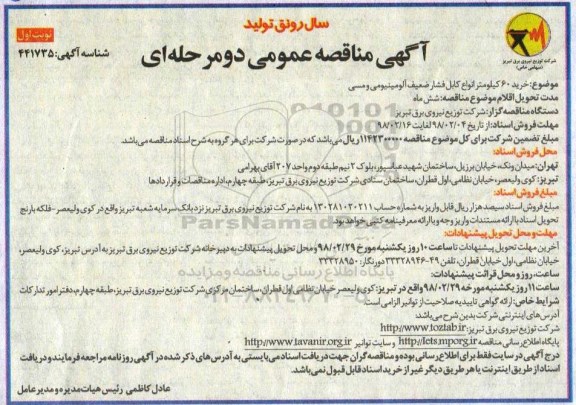 سال رونق تولید
نوبت اول
شرکت توزیع نیروی برق تبریز
(سهامی خاص)
آگهی مناقصه عمومی دو مرحله‌ای
شناسه آگهی: ۴۴۱۷۳۵
موضوع: خرید ۶۰ کیلومتر انواع کابل فشار ضعیف آلومینیومی و مسی
مدت تحویل اقلام موضوع مناقصه: شش ماه
دستگاه مناقصه گزار: شرکت توزیع نیروی برق تبریز
مهلت فروش اسناد: از تاریخ ۹۸/۰۲/۰۴ لغایت ۹۸/۰۲/۱۶
مبلغ تضمین شرکت برای کل موضوع مناقصه ۱۱۴۲۳۰۰۰۰۰ ریال می‌باشد که در صورت شرکت برای هر گروه به شرح اسناد مناقصه می‌باشد.
محل فروش اسناد:
تهران: میدان ونک، خیابان برزیل، ساختمان شهید عباسپور، بلوک ۲ نیم طبقه دوم واحد ۲۰۷ آقای بهرامی
تبریز: کوی ولیعصر، خیابان نظامی، اول قطران، ساختمان ستادی شرکت توزیع نیروی برق تبریز، طبقه چهارم، اداره مناقصات و قراردادها
مبلغ فروش اسناد:
مبلغ فروش اسناد سیصد هزار ریال قابل واریز به شماره حساب ۱۳۰۲۸۱۰۲۰۲۱۱ به نام شرکت توزیع نیروی برق تبریز نزد بانک سرمایه شعبه تبریز واقع در کوی ولیعصر- فلکه بارنج
تحویل اسناد با ارائه مستندات واریز وجه و با ارائه معرفینامه کتبی خواهد بود.
مهلت و محل تحویل پیشنهادات:
آخرین مهلت تحویل پیشنهادات تا ساعت ۱۰ روز یکشنبه مورخ ۹۸/۰۲/۲۹ و محل تحویل پیشنهادات به دبیرخانه شرکت توزیع نیروی برق تبریز به آدرس تبریز، کوی ولیعصر،
خیابان نظامی، اول خیابان قطران، تلفن ۴۹-۳۳۳۲۸۹۴۶ دورنگار: ۳۳۳۲۸۹۵۰
ساعت، روز و محل قرائت پیشنهادات:
ساعت ۱۱ روز یکشنبه مورخه ۹۸/۰۲/۲۹ واقع در تبریز: کوی ولیعصر، خیابان نظامی اول قطران، ساختمان مرکزی شرکت توزیع نیروی برق تبریز، طبقه چهارم، دفتر امور تدارکات
شرایط خاص: ارائه گواهی تاییدیه صلاحیت از توانیر الزامی است.
آدرس‌های اینترنتی شرکت بدین شرح می‌باشد:
شرکت توزیع نیروی برق تبریز: http://www.toztab.ir
پایگاه اطلاع رسانی مناقصه http://iets.mporg.ir وسایت توانیر http://www.tavanir.org.ir
درج آگهی در سایت فقط برای اطلاع رسانی بوده و مناقصه گران جهت دریافت اسناد می‌بایستی به آدرس‌های ذکر شده در آگهی روزنامه مراجعه فرمایند و دریافت
اسناد از طریق اینترنت یا هر طریق دیگر غیر از خرید اسناد قابل قبول نمی‌باشد.
عادل کاظمی رئیس هیات مدیره و مدیرعامل
ParsNamadData
پایگاه اطلاع رسانی مناقصه و مزایده